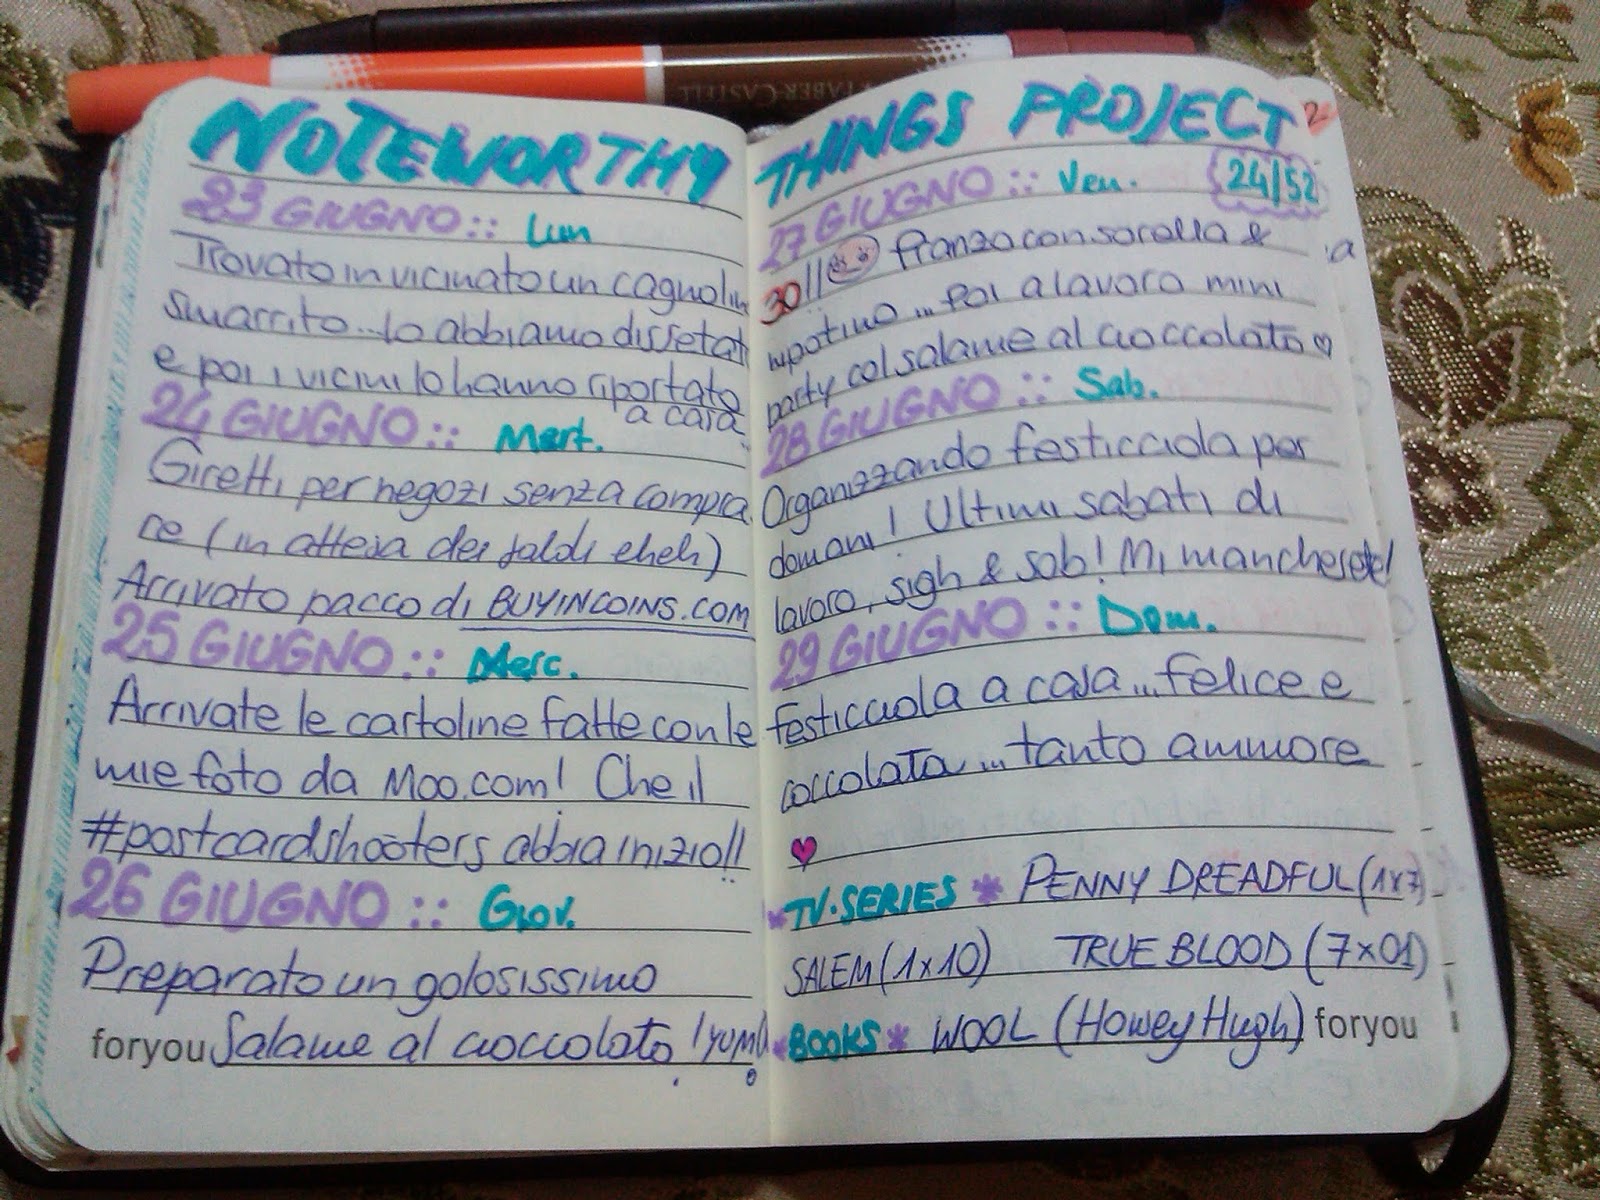 FABER-CASTELL
NOTEWORTHY
23 GIUGNO :: Lun
Trovato in vicinato un cagnolin
smarrito...lo abbiamo dissetat
e poi i vicini lo hanno riportato
a casa
24 GIUGNO :: Mart.
Giretti per negozi senza compra
re (in attesa dei saldi eheh)
Arrivato pacco di BUYINCOINS.COM
25 GIUGNO :: Merc.
Arrivate le cartoline fatte con le
mie foto da Moo.com! Che il
#postcardshooters abbia inizio!!
26 GIUGNO :: Giov.
Preparato un golosissimo
foryou Salame al cioccolato !yum!
THINGS PROJECT
27 GIUGNO :: Ven. 24/52
30!! Pranzo con sorella &
nipotino... poi a lavoro mini
party col salame al cioccolato ♡
28 GIUGNO :: Sab.
Organizzando festicciola per
domani! Ultimi sabati di
lavoro, sigh & sob! Mi mancherete!
29 GIUGNO :: Dom.
Festicciola a casa...felice e
coccolata...tanto ammore
♥
*TV-SERIES * PENNY DREADFUL (1x7)
SALEM (1x10) TRUE BLOOD (7x01)
*BOOKS * WOOL (Howey Hugh) foryou